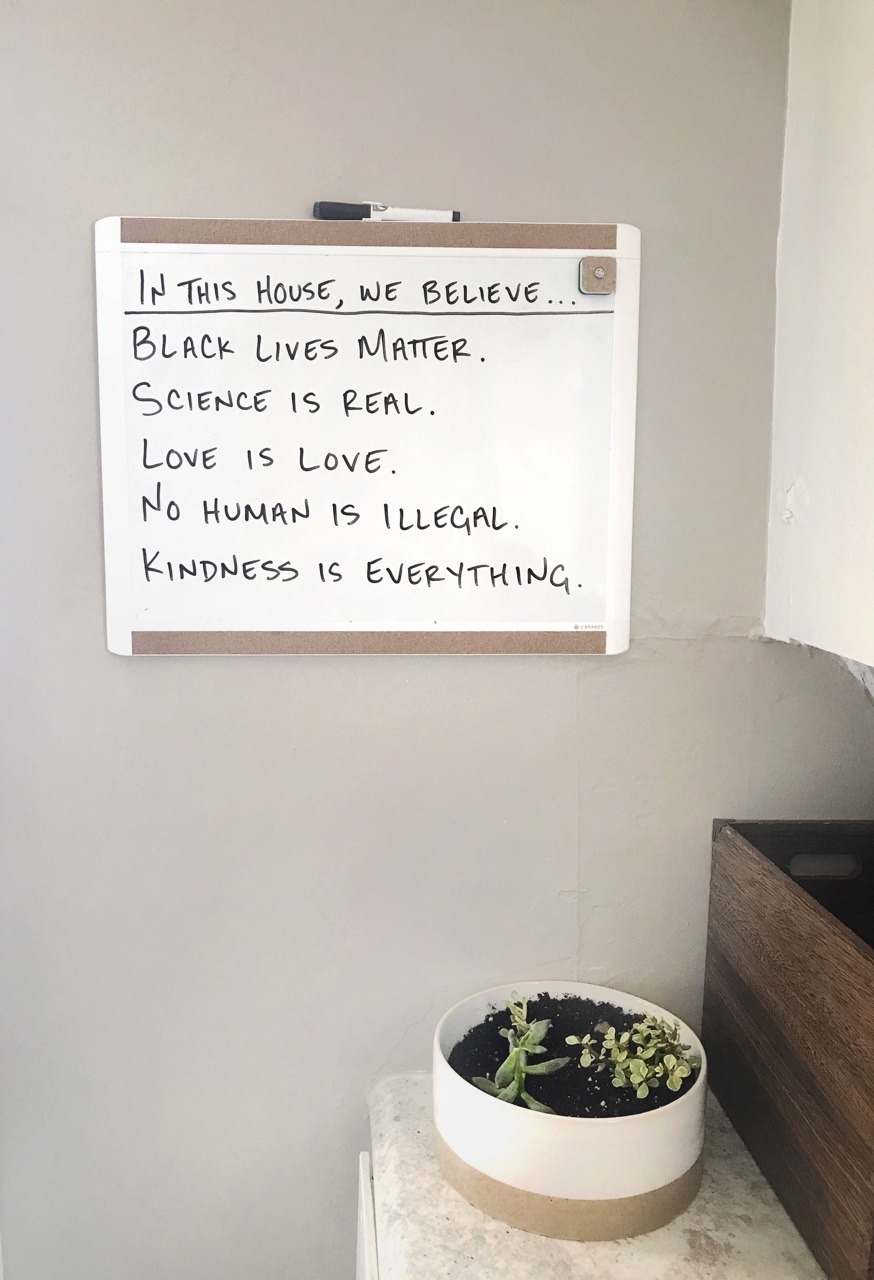 IN THIS HOUSE, WE BELIEVE...
BLACK LIVES MATTER.
SCIENCE IS REAL.
LOVE IS LOVE.
NO HUMAN IS ILLEGAL.
KINDNESS IS EVERYTHING.
U BRANDS